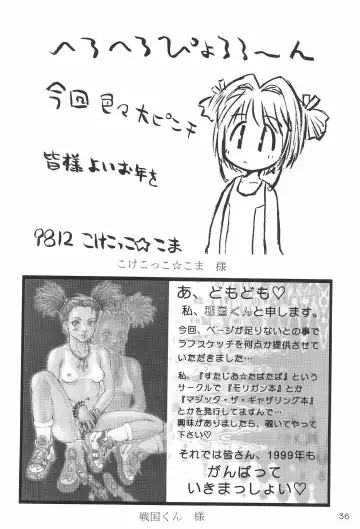 へろへろぴょろろ〜ん
今回 色々大ピンチ
皆様よいお年を
9812 こけこっこ☆こま
こけこっこ☆こま 様
あ、どもども♡
私、戦国くんと申します。
今回、ページが足りないとの事で
ラフスケッチを何点か提供させて
いただきました…
私、『すたじあ☆たばたば』という
サークルで『モリガン本』とか
『マジック・ザ・ギャザリング本』
とかを発行してますんで…
興味がありましたら、覗いてやって
下さい♡
それでは皆さん、1999年も
がんばって
いきまっしょい♡
戦国くん 様
36